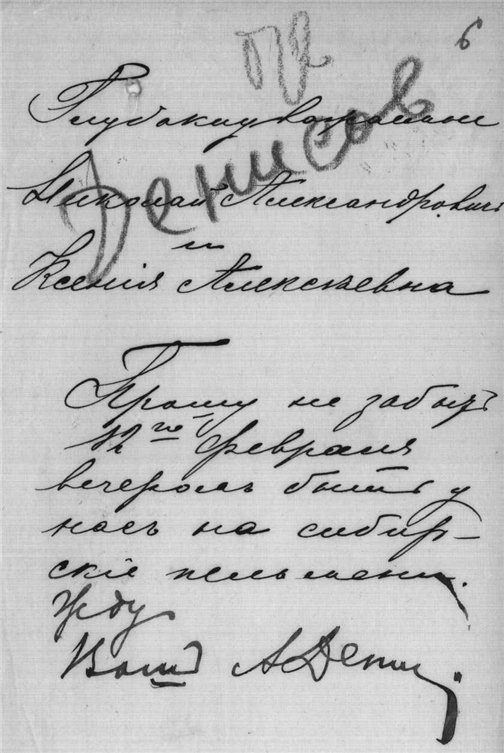 6
Глубокоуважаемые
Денисов
Николай Александровичъ
и
Ксенія Алексѣевна
Прошу не забыть
12го февраля
вечеромъ быть у
насъ на сибир-
скіе пельмени.
Жду
Вашъ А Дени